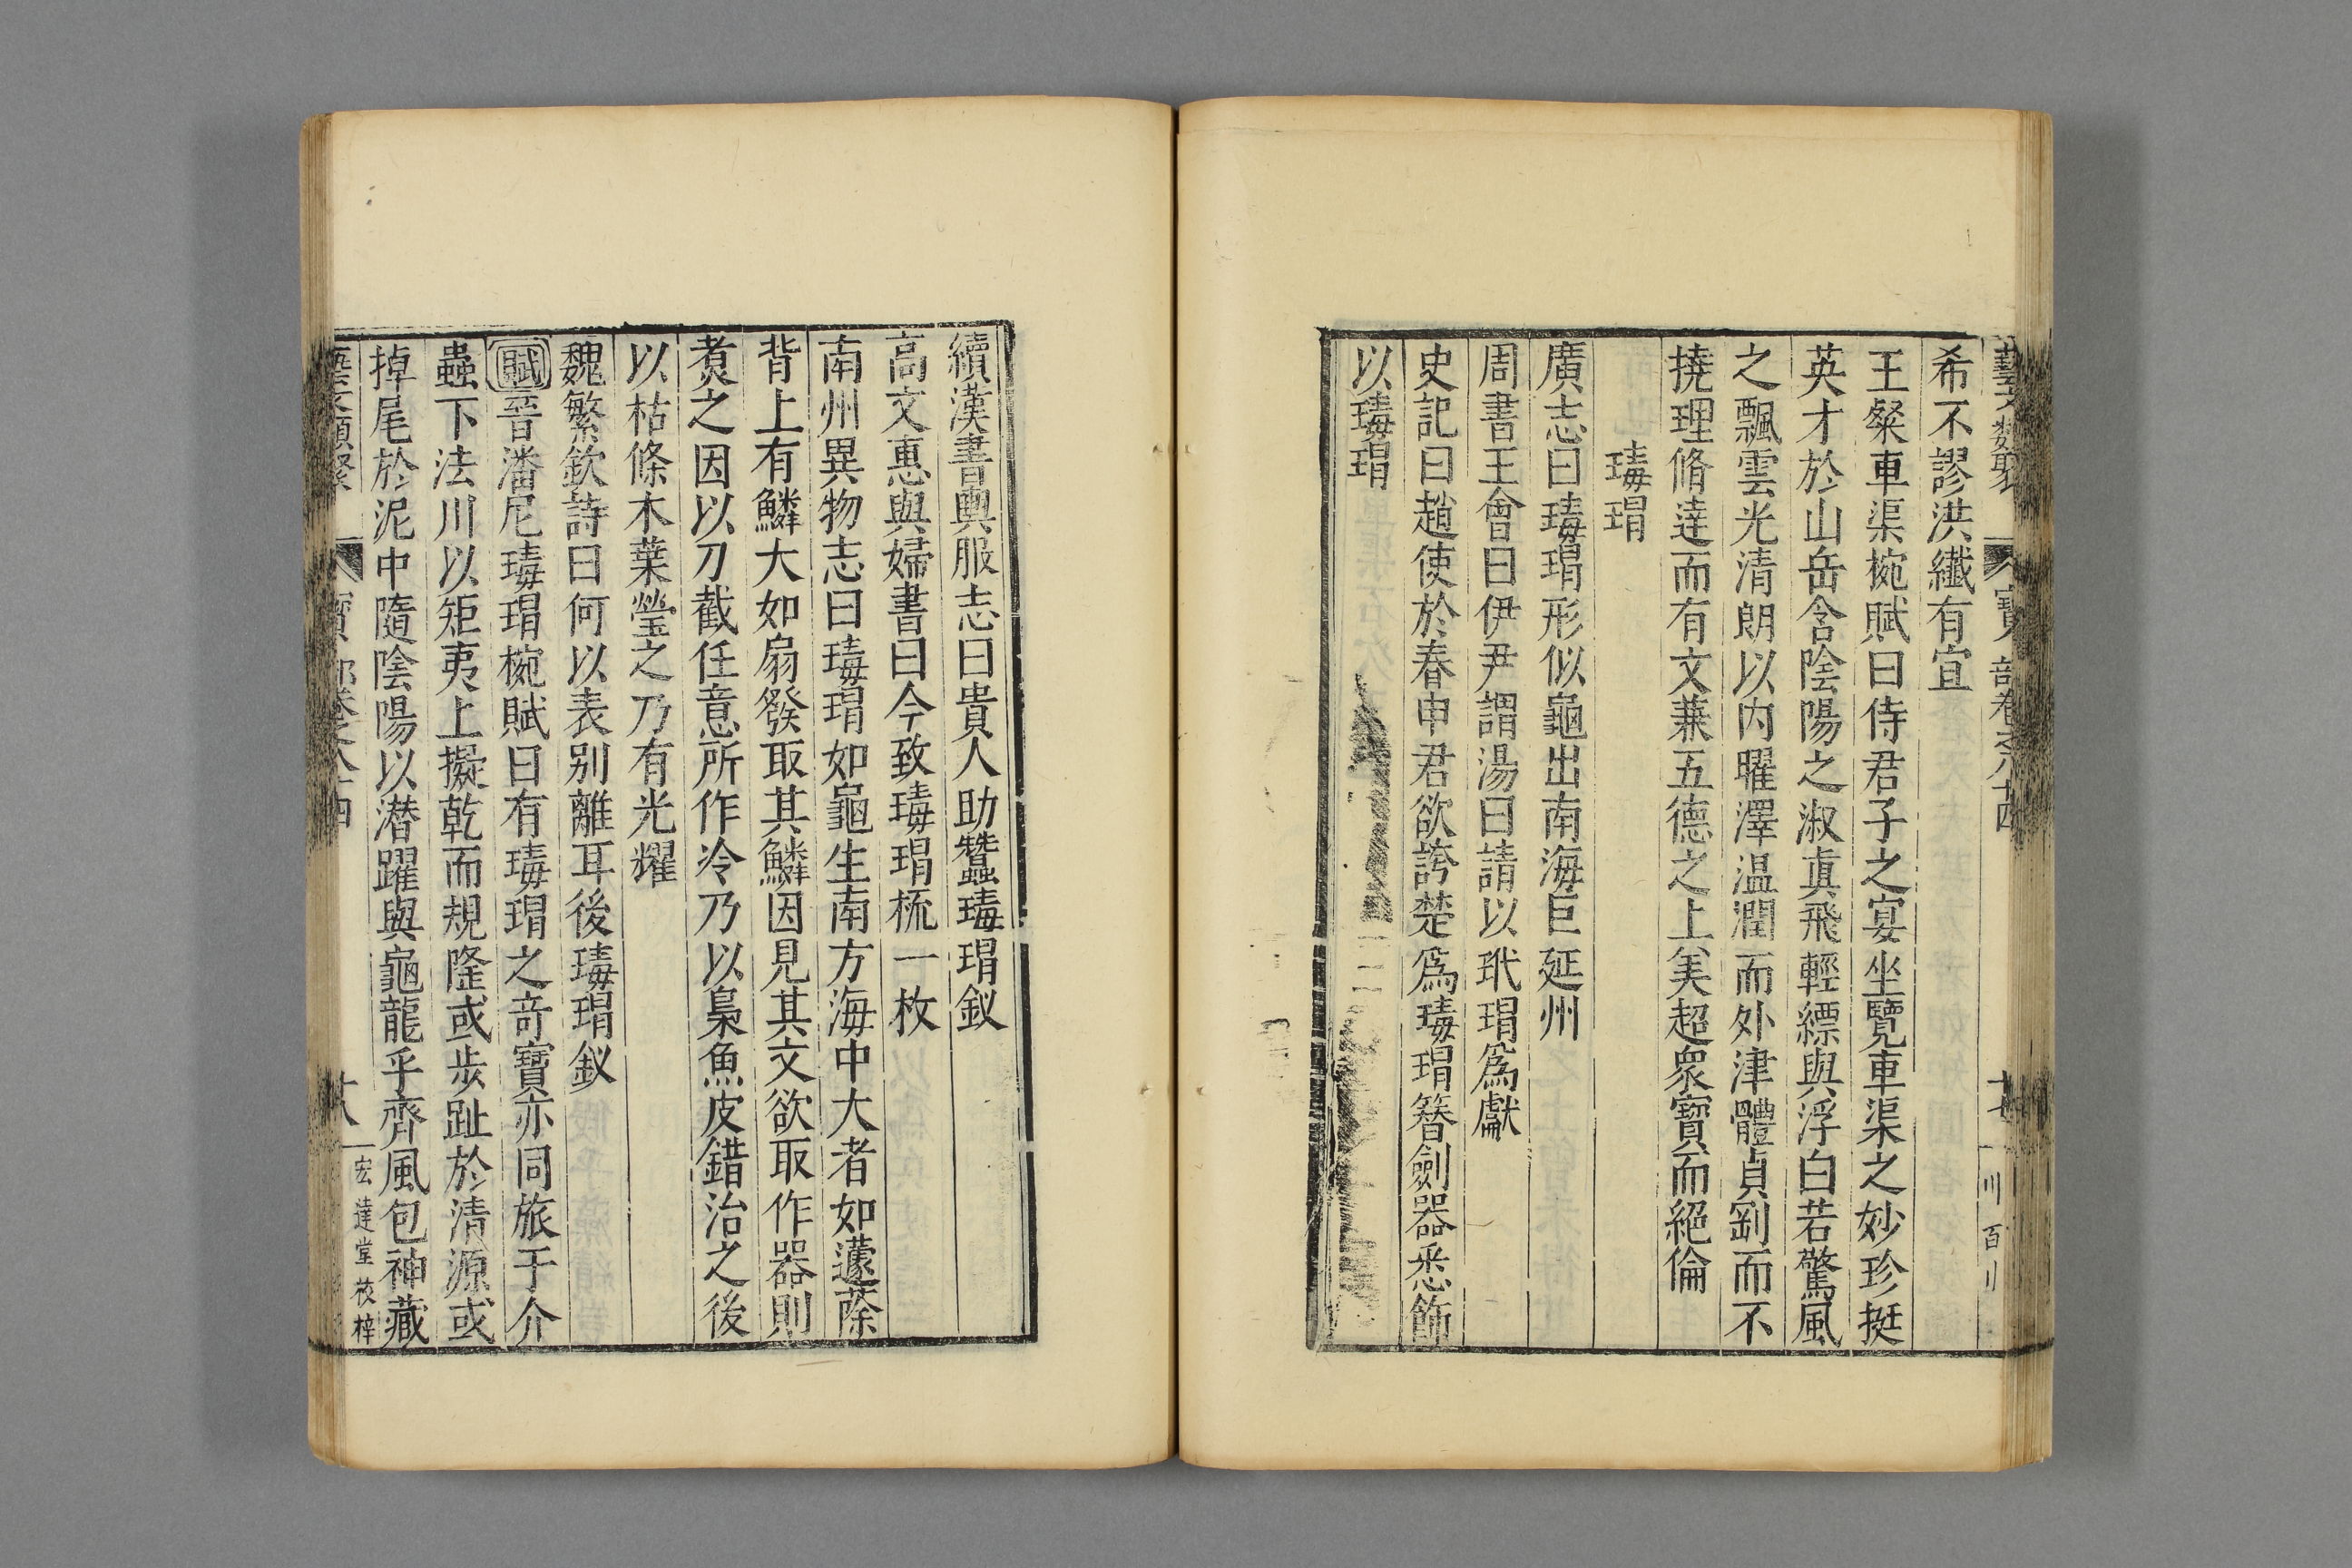 藝文類聚 寶部卷之八十四
希不謬洪纖有宜
王粲車渠椀賦曰侍君子之宴坐覽車渠之妙珍挺
英才於山岳含陰陽之淑真飛輕縹與浮白若驚風
之飄雲光清朗以内曜澤温潤而外津體貞剛而不
撓理脩達而有文蒹五德之上美超衆寶而絕倫
瑇瑁
廣志曰瑇瑁形似龜出南海巨延州
周書王會曰伊尹謂湯曰請以玳瑁爲獻
史記曰趙使於春申君欲誇楚爲瑇瑁簪劍器悉飾
以瑇瑁
續漢書輿服志曰貴人助蠶瑇瑁釵
高文惠與婦書曰今致瑇瑁梳一枚
南州異物志曰瑇瑁如龜生南方海中大者如蘧蒢
背上有鱗大如扇發取其鱗因見其文欲取作器則
煑之因以刀截任意所作冷乃以梟魚皮錯治之後
以枯條木葉瑩之乃有光耀
魏繁欽詩曰何以表别離耳後瑇瑁釵
賦晉潘尼瑇瑁椀賦曰有瑇瑁之竒寶亦同旅于介
蟲下法川以矩夷上擬乾而規隆或步趾於清源或
掉尾於泥中隨陰陽以潜躍與龜龍乎齊風包神藏
藝文類聚 寶部卷之八十四 廿八 宏達堂校梓